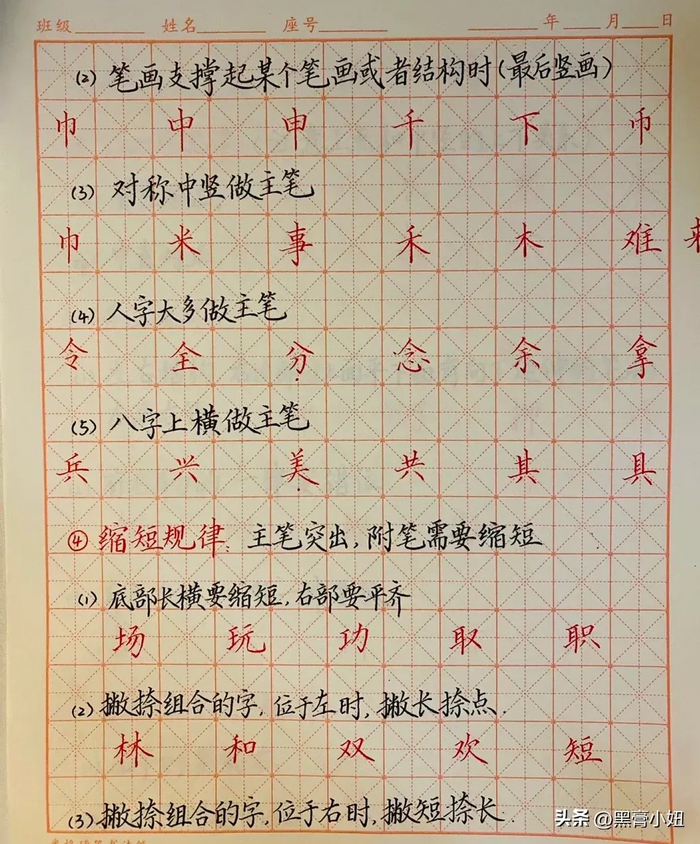 班级 姓名 座号 年 月 日
(2) 笔画支撑起某个笔画或者结构时(最后竖画)
巾 中 申 千 下 币
(3) 对称中竖做主笔
巾 米 事 禾 木 难 来
(4) 人字大多做主笔
令 全 分 念 余 拿
(5) 八字上横做主笔
兵 兴 美 共 其 具
④ 缩短规律: 主笔突出,附笔需要缩短
(1) 底部长横要缩短,右部要平齐
场 玩 功 取 职
(2) 撇捺组合的字,位于左时,撇长捺点.
林 和 双 欢 短
(3) 撇捺组合的字,位于右时,撇短捺长.
头条 @黑膏小妞